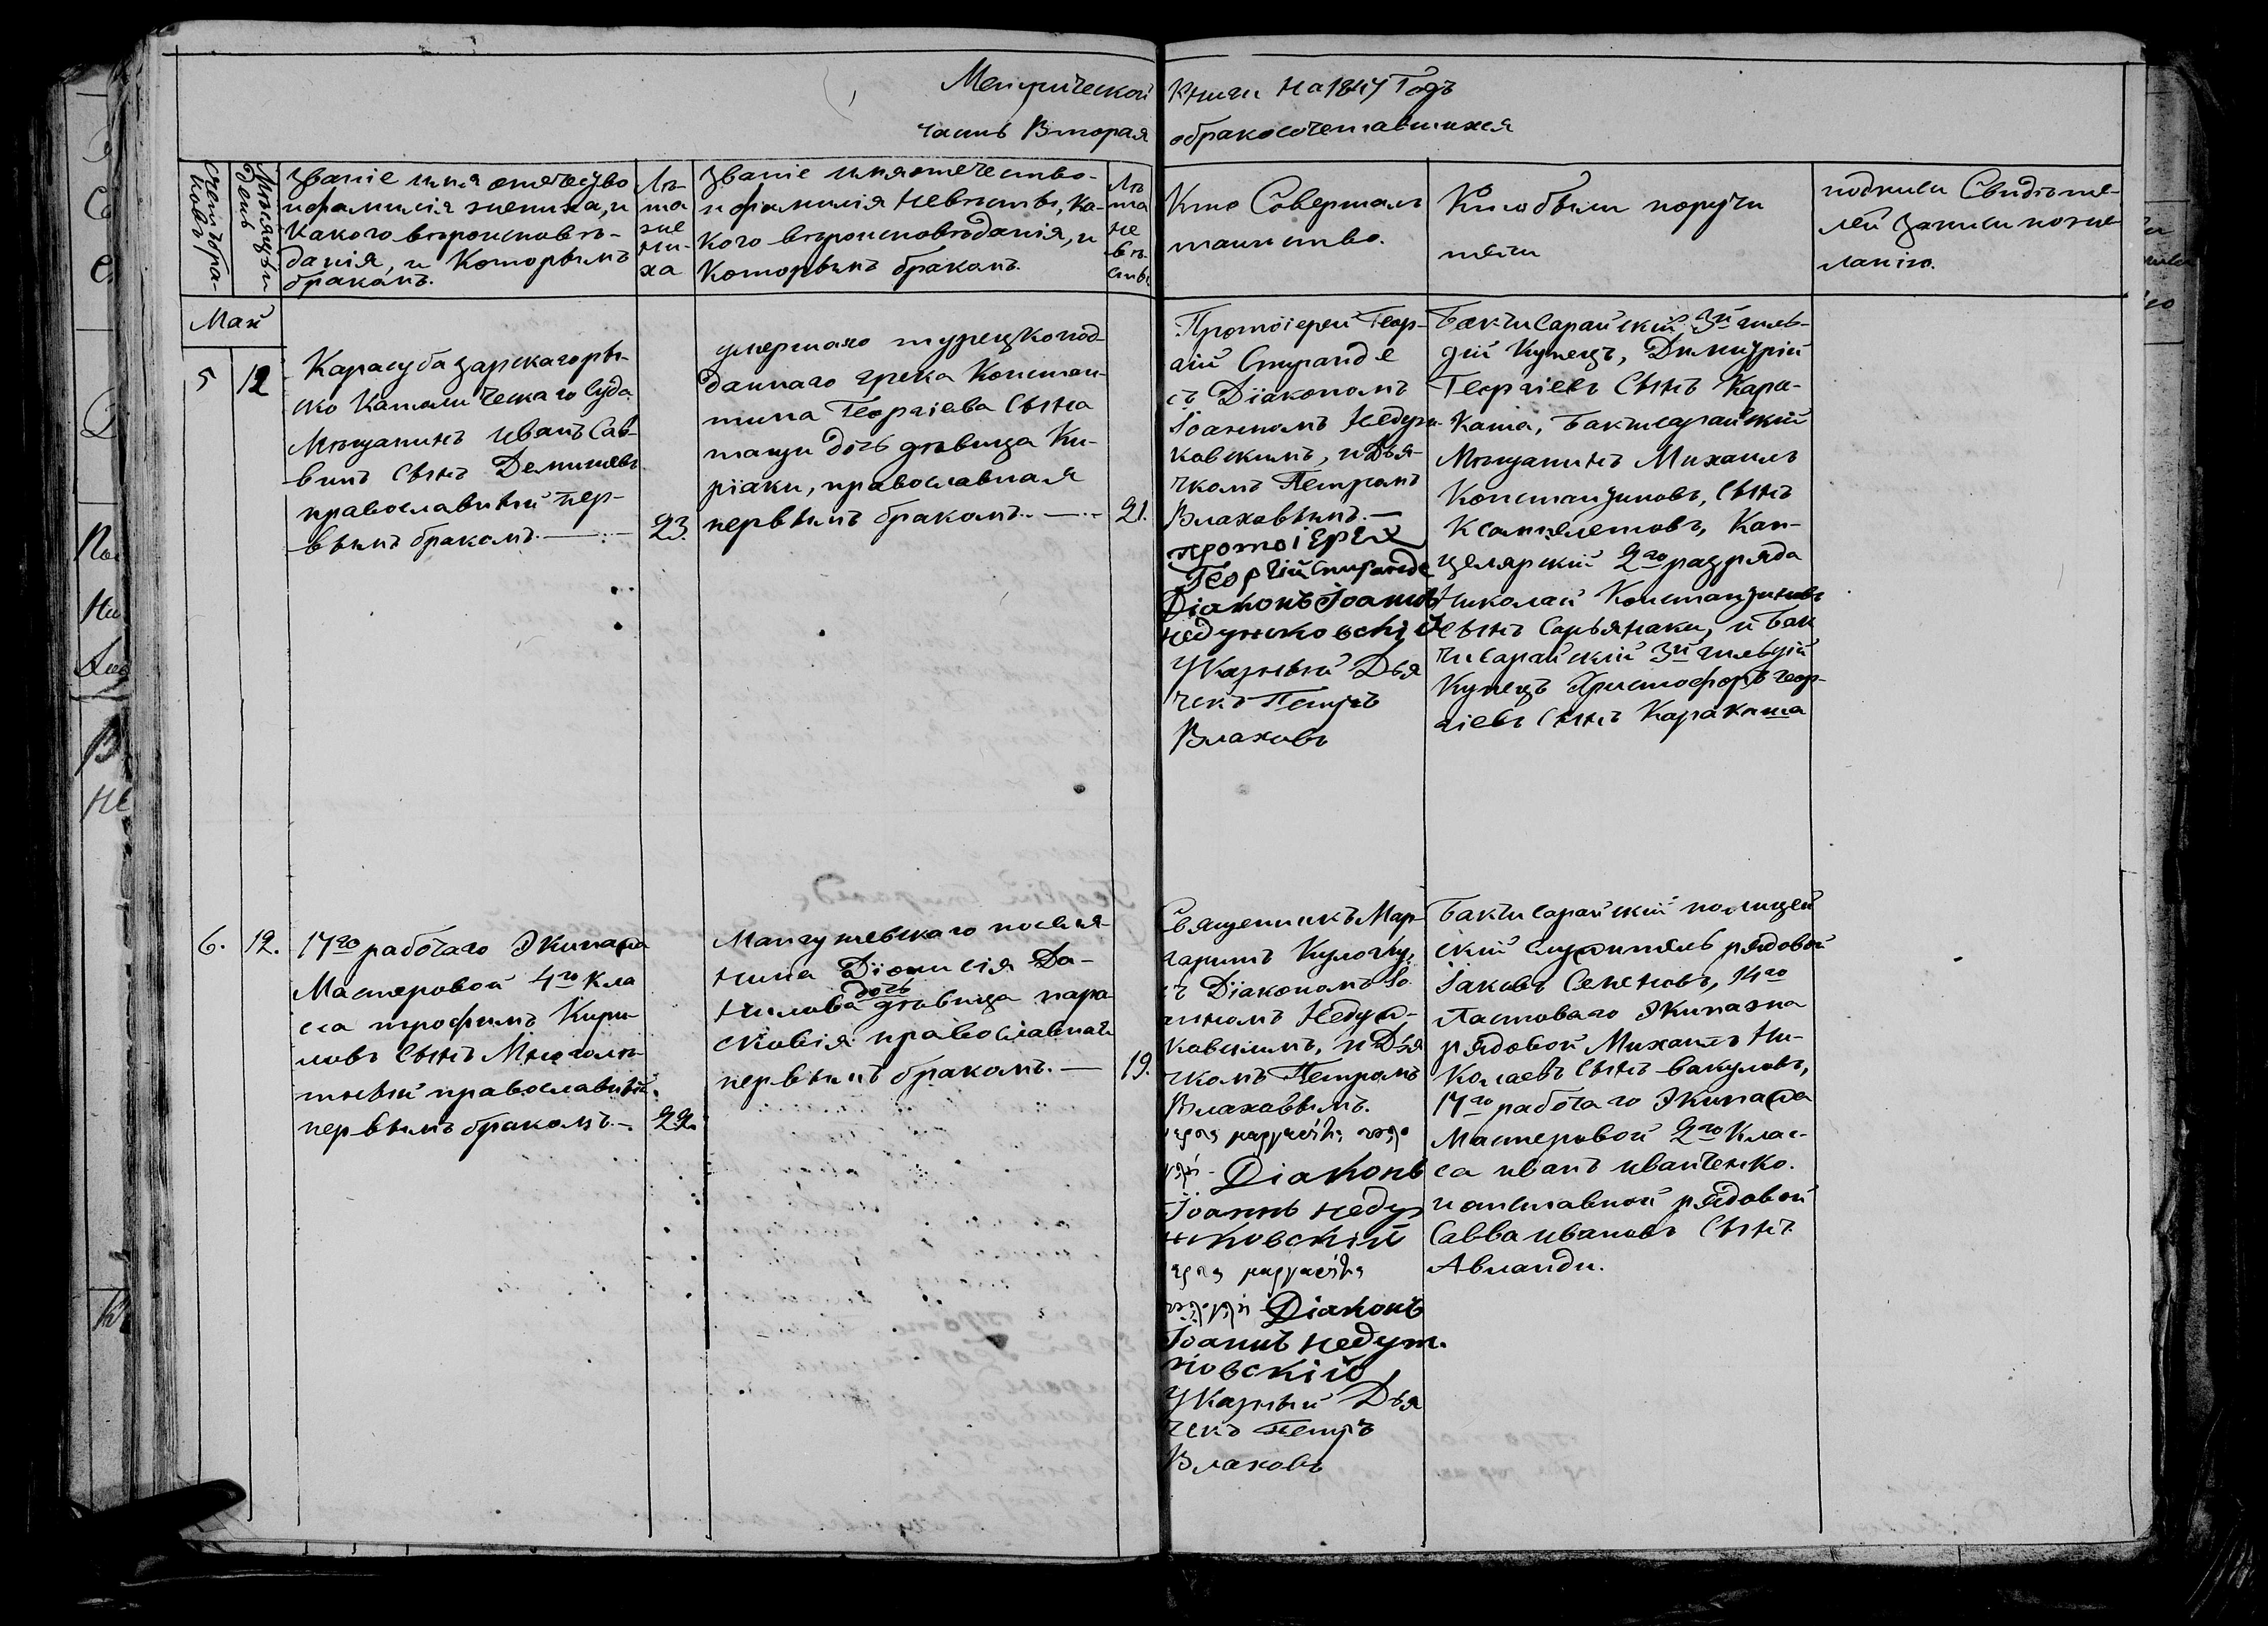 Метрической книги на 1847 Годъ
часть Вторая о бракосочетавшихся
Счетъ бра-
ковъ
Мѣсяцъ и
день
Званіе имя отечество
и фамилія жениха, и
какого вѣроисповѣ-
данія, и Которымъ
бракомъ.
Лѣ-
та
же
ни-
ха
Званіе имя отечество
и фамилія невѣсты, ка-
кого вѣроисповѣданія, и
Которымъ бракомъ.
Лѣ
та
не
вѣ
сты
Кто Совершалъ
таинство.
Кто были поручи
тели
подписи Свидѣте-
лей записи по же
ланію.
Май
5
12
Карасубазарскаго рим-
ско Католическаго Суда
Мѣщанинъ Иванъ Сав-
винъ Сынъ
православный пер-
вымъ бракомъ.
23.
умершаго турецкопод-
даннаго грека Констан-
тина Георгіева Сына
дочь дѣвица Ки-
ріаки, православная
первымъ бракомъ.
21.
Протоіерей Геор-
гій Спиранде
съ Діакономъ
Іоанномъ
ковскимъ, и Дья-
чкомъ Петромъ
Влаховымъ.
протоіерей
Георгій Спиранде
Діаконъ Іоаннъ
Указный Дья
чекъ Петръ
Влаховъ
Бакчисарайскій 3й гиль-
дій Купецъ, Димитрій
Георгіевъ Сынъ Кара-
каша, Бакчисарайскій
Мѣщанинъ Михаилъ
Константиновъ, Сынъ
Кан-
целярскій 2го разряда
Николай Константиновъ
Сынъ Сарьянаки, и Бак
чисарайскій 3й гильдій
Купецъ Христофоръ Геор-
гіевъ Сынъ Каракаша
6.
12.
17го рабочаго Экипажа
Мастеровой 4го Кла
сса трофимъ Кири
ловъ Сынъ Многолѣ-
тный православный
первымъ бракомъ.
22.
Мангушевскаго поселя-
нина Діонисія Да-
дочь
нилова дѣвица пара
сковія православная
первымъ бракомъ.
19.
Священникъ Мар-
гаритъ
съ Діакономъ Іо
анномъ
ковскимъ, и Дья
чкомъ Петромъ
Влаховымъ.
Діаконъ
Іоаннъ
Діаконъ
Іоаннъ
Указный Дья
чекъ Петръ
Влаховъ
Бакчисарайскій полицей
скій служитель рядовой
Іаковъ Семеновъ, 14го
Ластоваго Экипажа
рядовой Михаилъ Ни-
колаевъ Сынъ Вакуловъ,
17го рабочаго Экипажа
Мастеровой 2го Клас-
са Иванъ Иванченко.
и отставной рядовой
Савва Ивановъ Сынъ
Авланди.